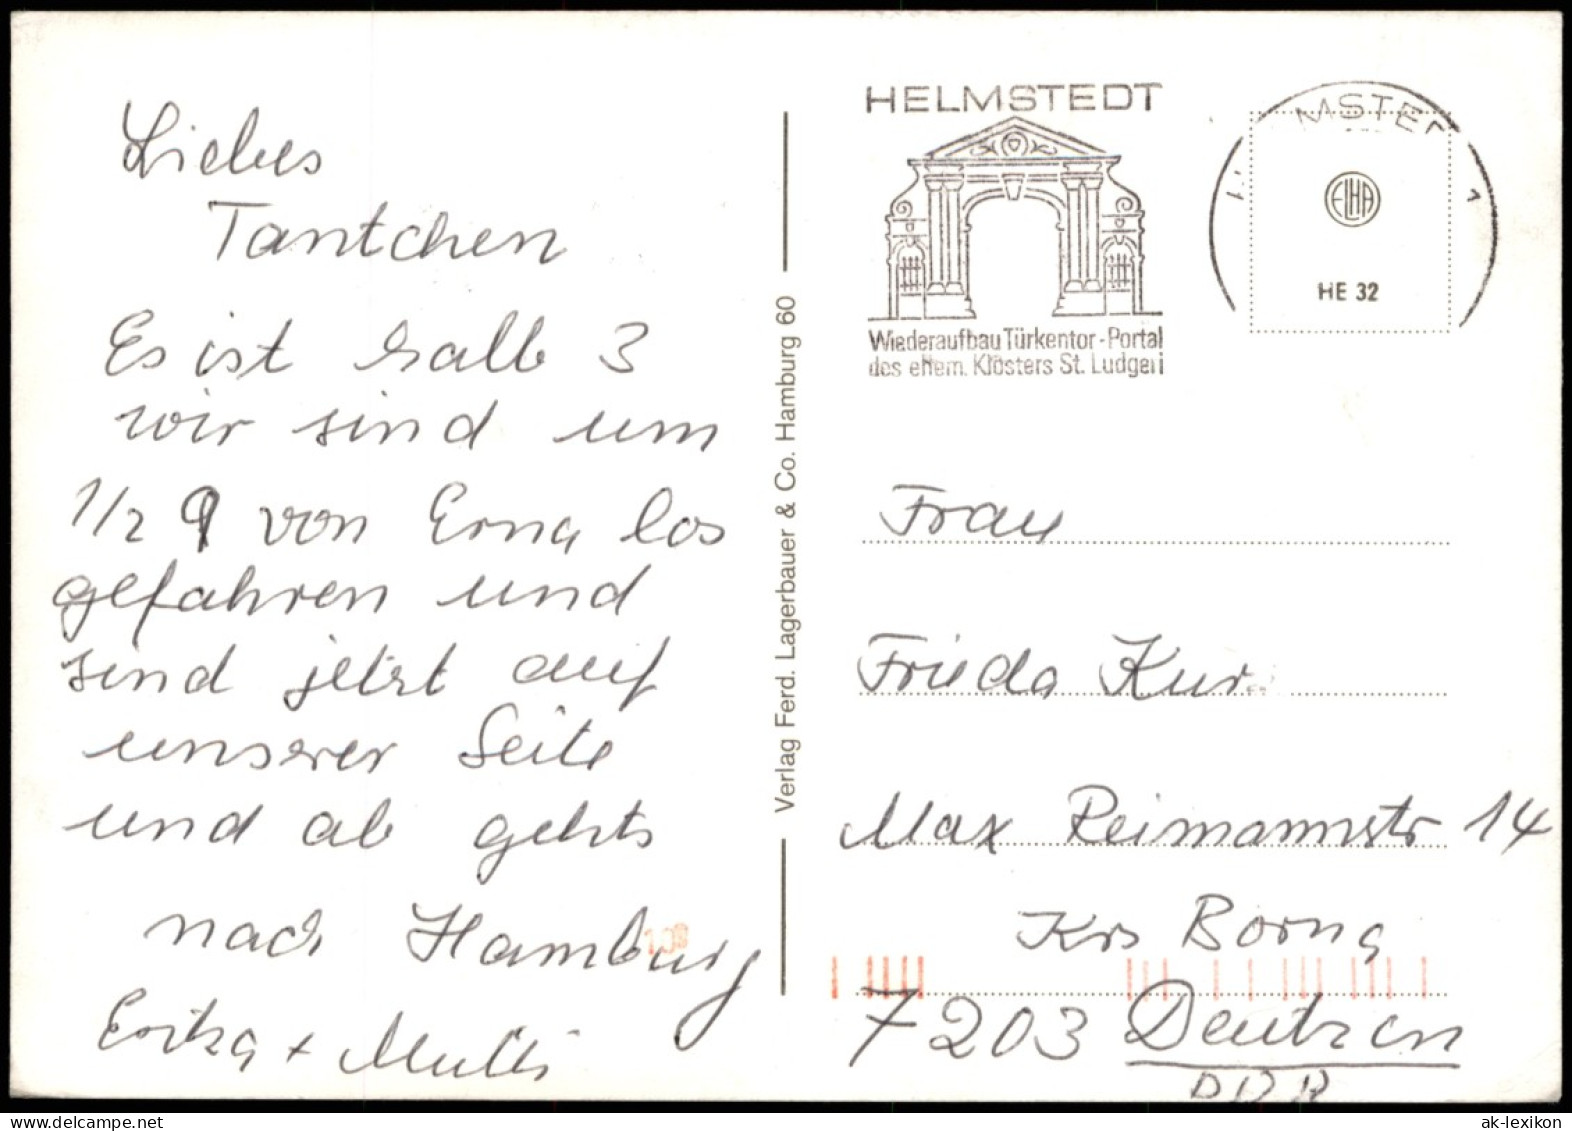 Liebes
Tantchen
Es ist halb 3
wir sind um
1/2 9 von Erna los
gefahren und
sind jetzt auf
unserer Seite
und ab gehts
nach Hamburg
Erika + Mutti
Verlag Ferd. Lagerbauer & Co. Hamburg 60
HELMSTEDT
Wiederaufbau Türkentor-Portal
des ehem. Klosters St. Ludgeri
MSTED
1
ELHA
HE 32
Frau
Frieda Kur
Max Reimannstr 14
Krs Borna
7203 Deutzen
DDR
ak-lexikon.com